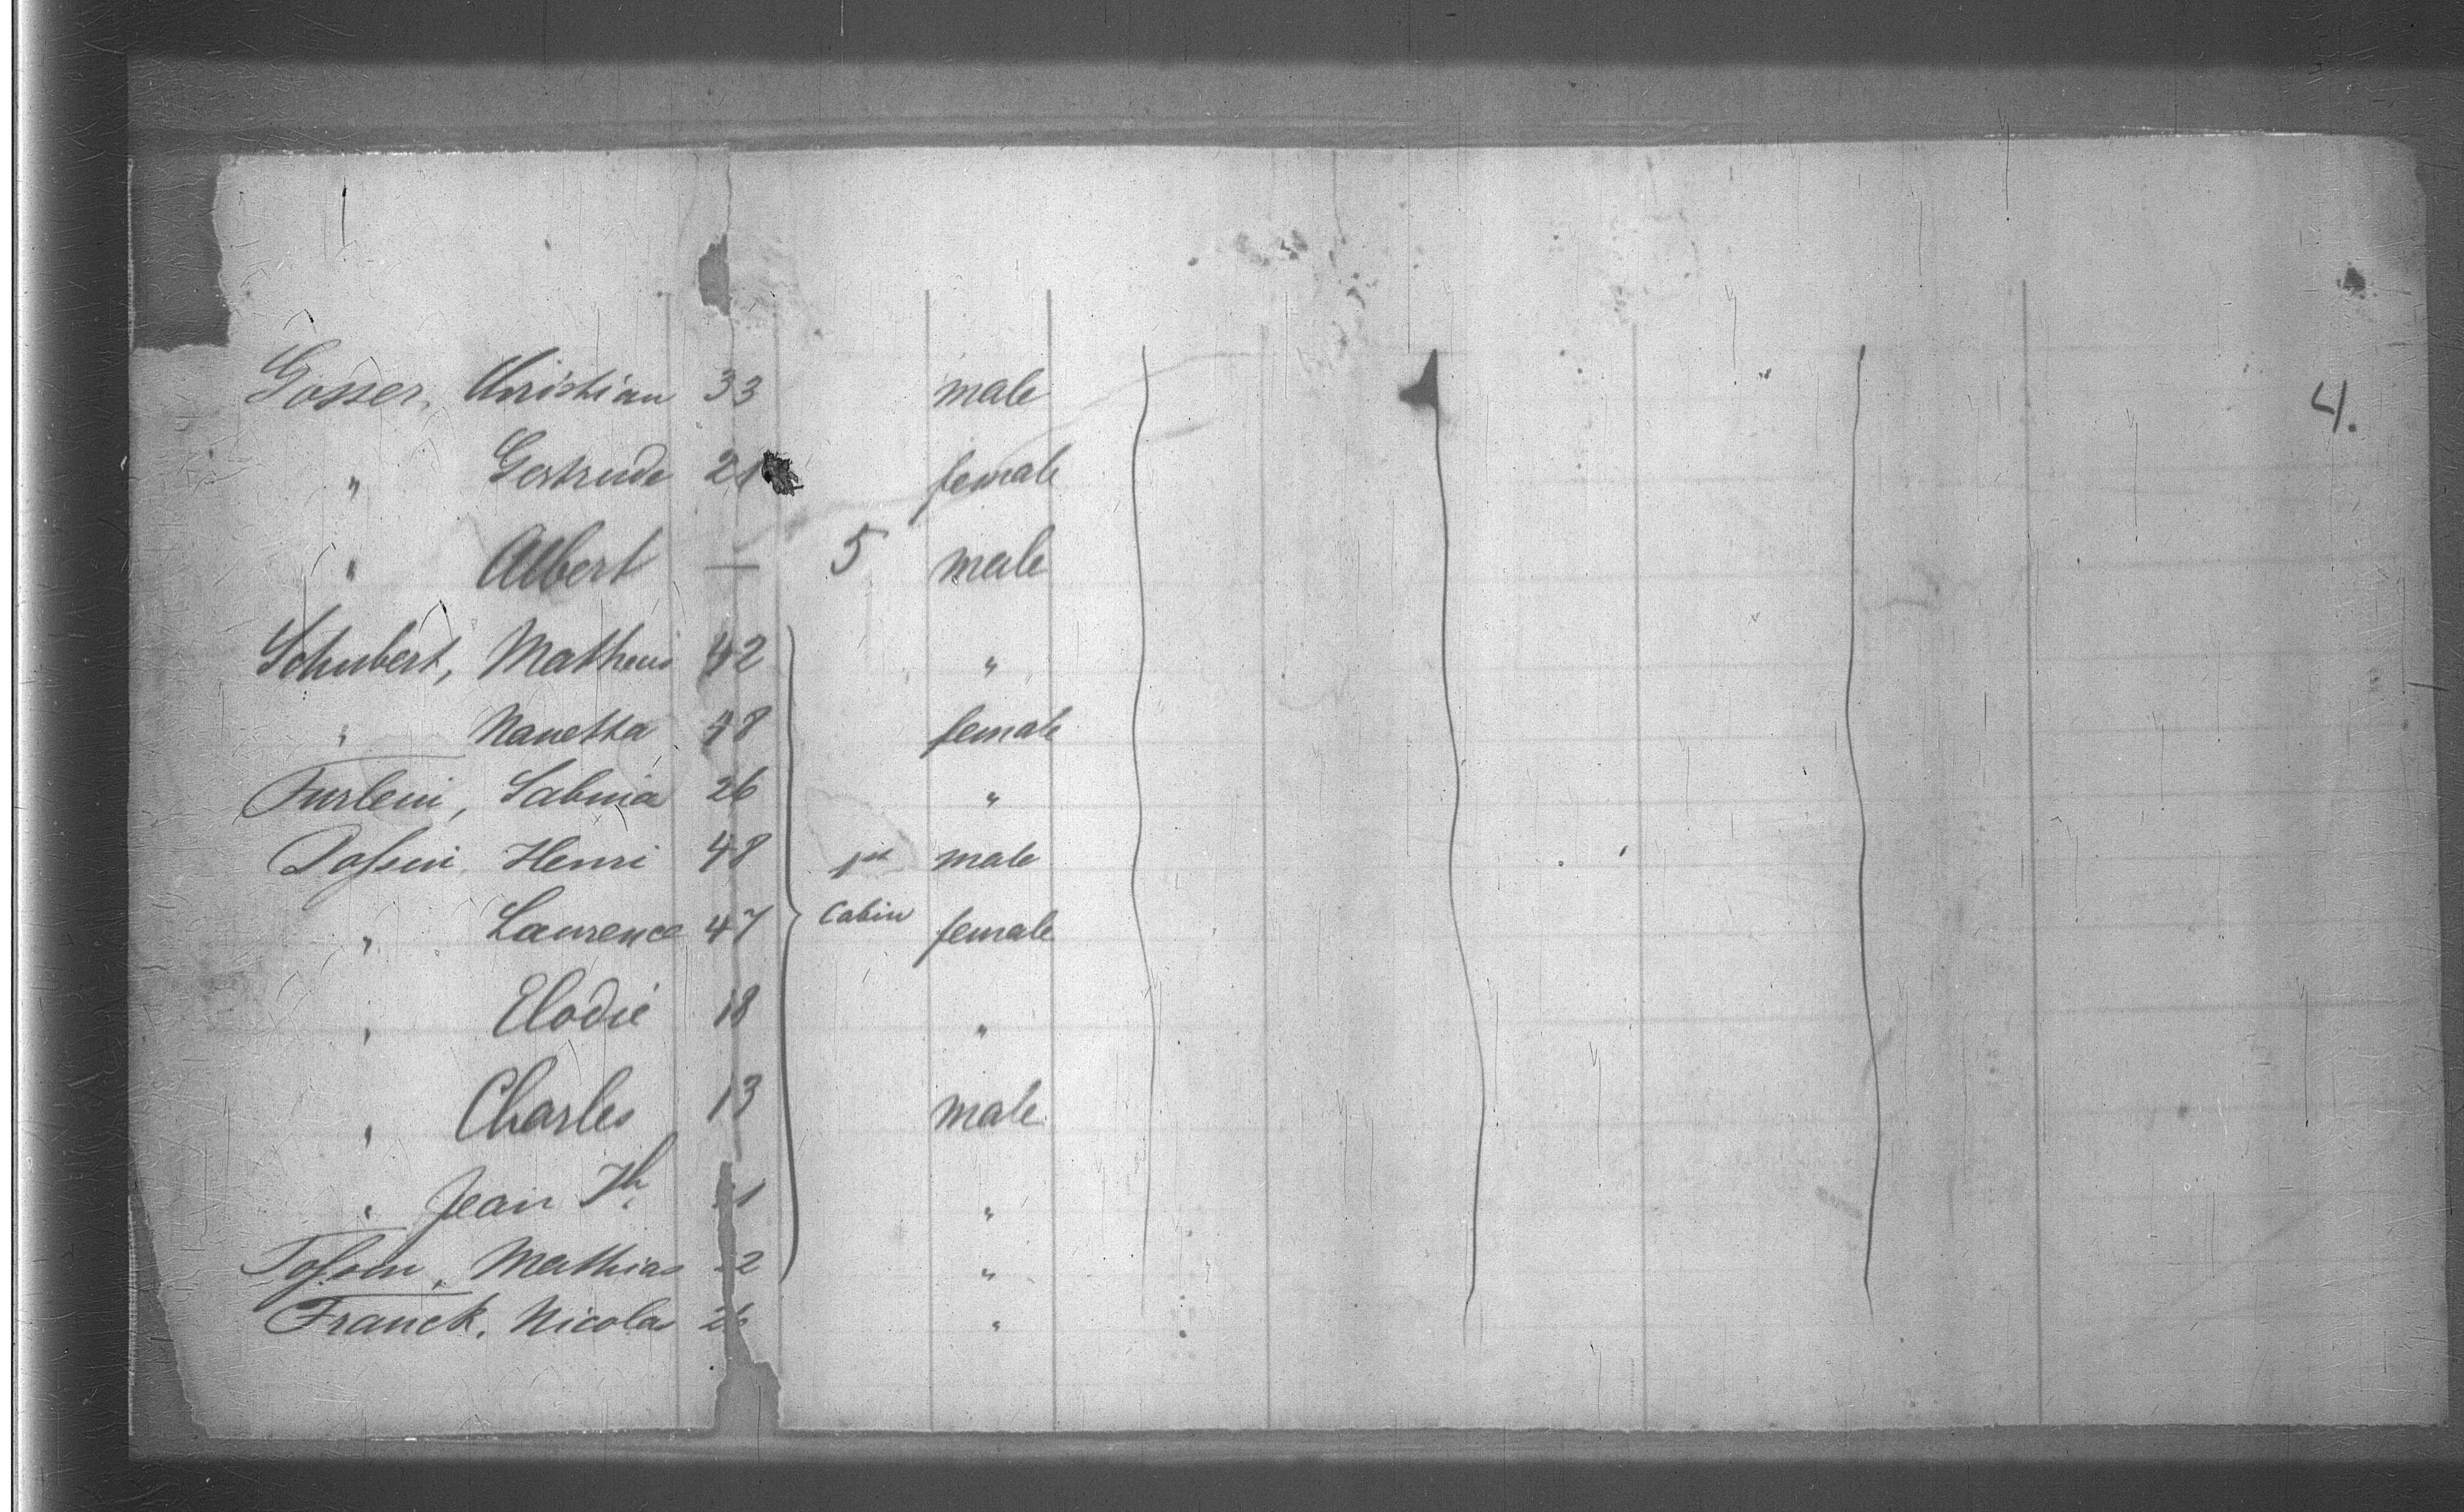 Gosser, Christian 33 male 4.
" Gertrude 21 female
" Albert — 5 male
Schubert, Matheus 42 "
" Nanetta 48 female
Furleni, Sabina 26 "
Henri 48 1st male
" Laurence 47 Cabin female
" Elodie 18 "
" Charles 13 male
" Jean Th. "
Mathias "
Franck, Nicolas 26 "